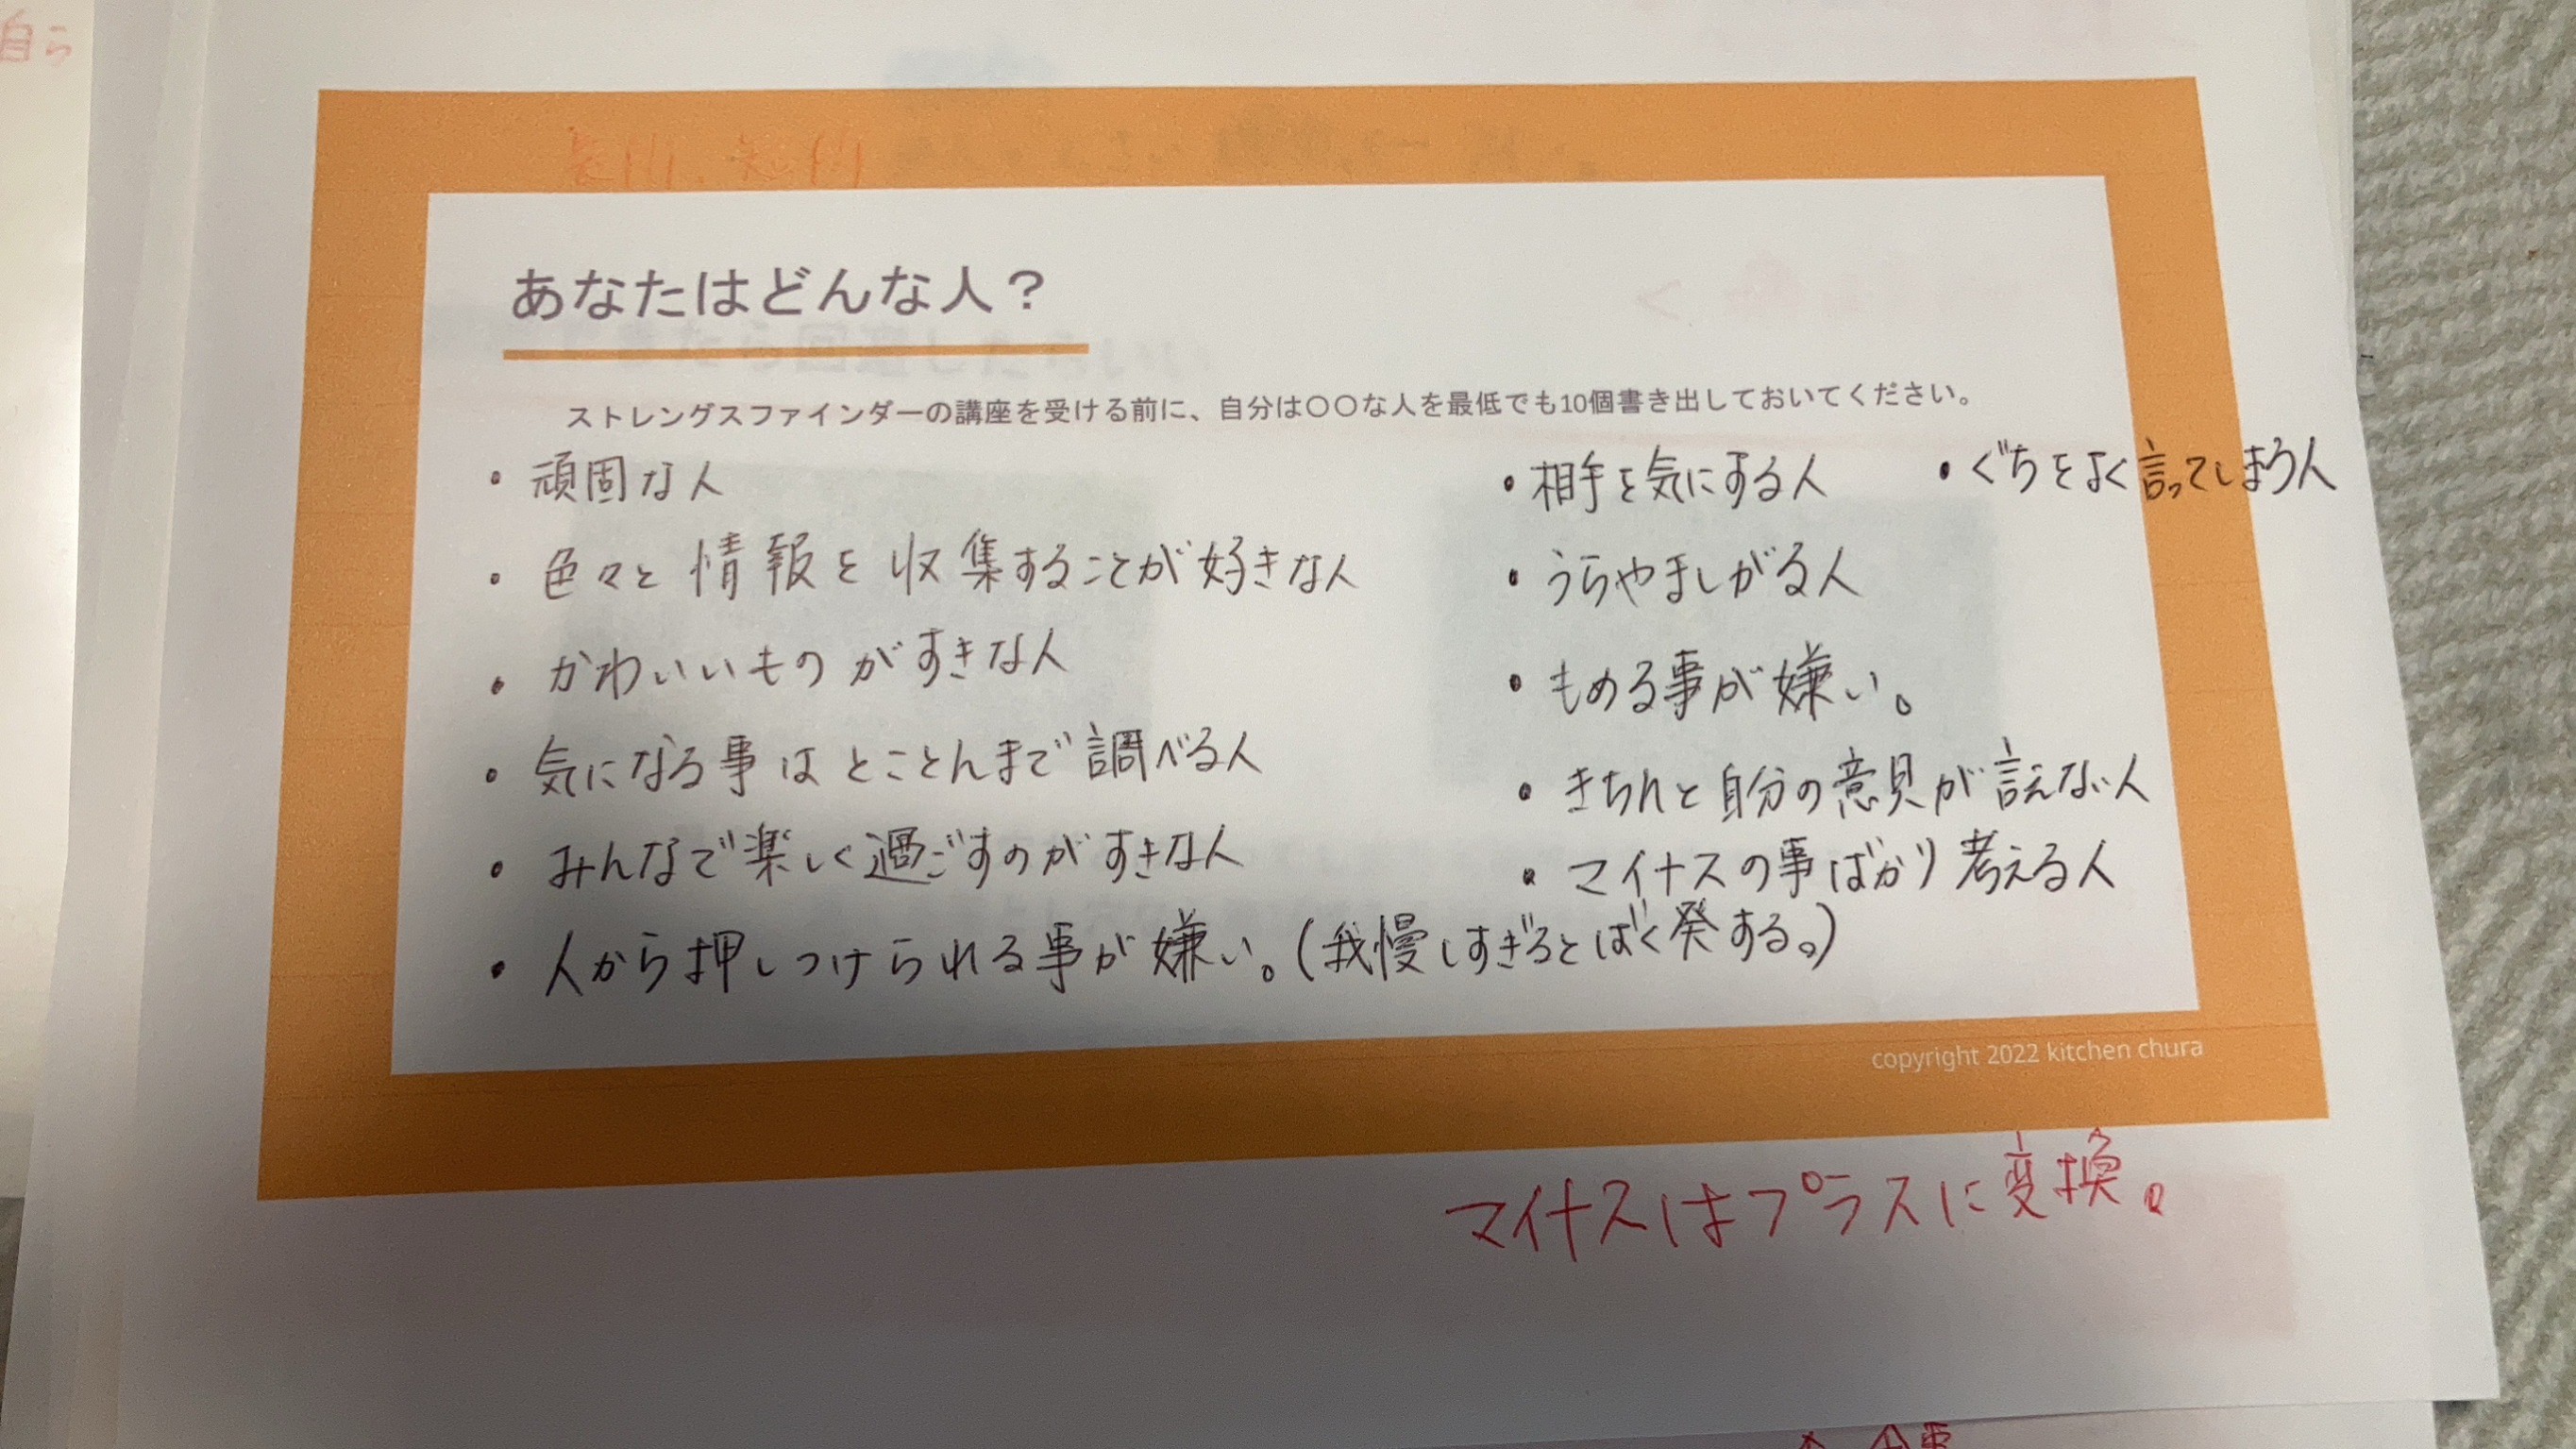 自ら
あなたはどんな人？
ストレングスファインダーの講座を受ける前に、自分は〇〇な人を最低でも10個書き出しておいてください。
・頑固な人
・色々と情報を収集することが好きな人
・かわいいものがすきな人
・気になる事はとことんまで調べる人
・みんなで楽しく過ごすのがすきな人
・人から押しつけられる事が嫌い。(我慢しすぎるとばく発する。)
・相手を気にする人
・うらやましがる人
・もめる事が嫌い。
・きちんと自分の意見が言えない人
・マイナスの事ばかり考える人
・ぐちをよく言ってしまう人
copyright 2022 kitchen chura
マイナスはプラスに変換。